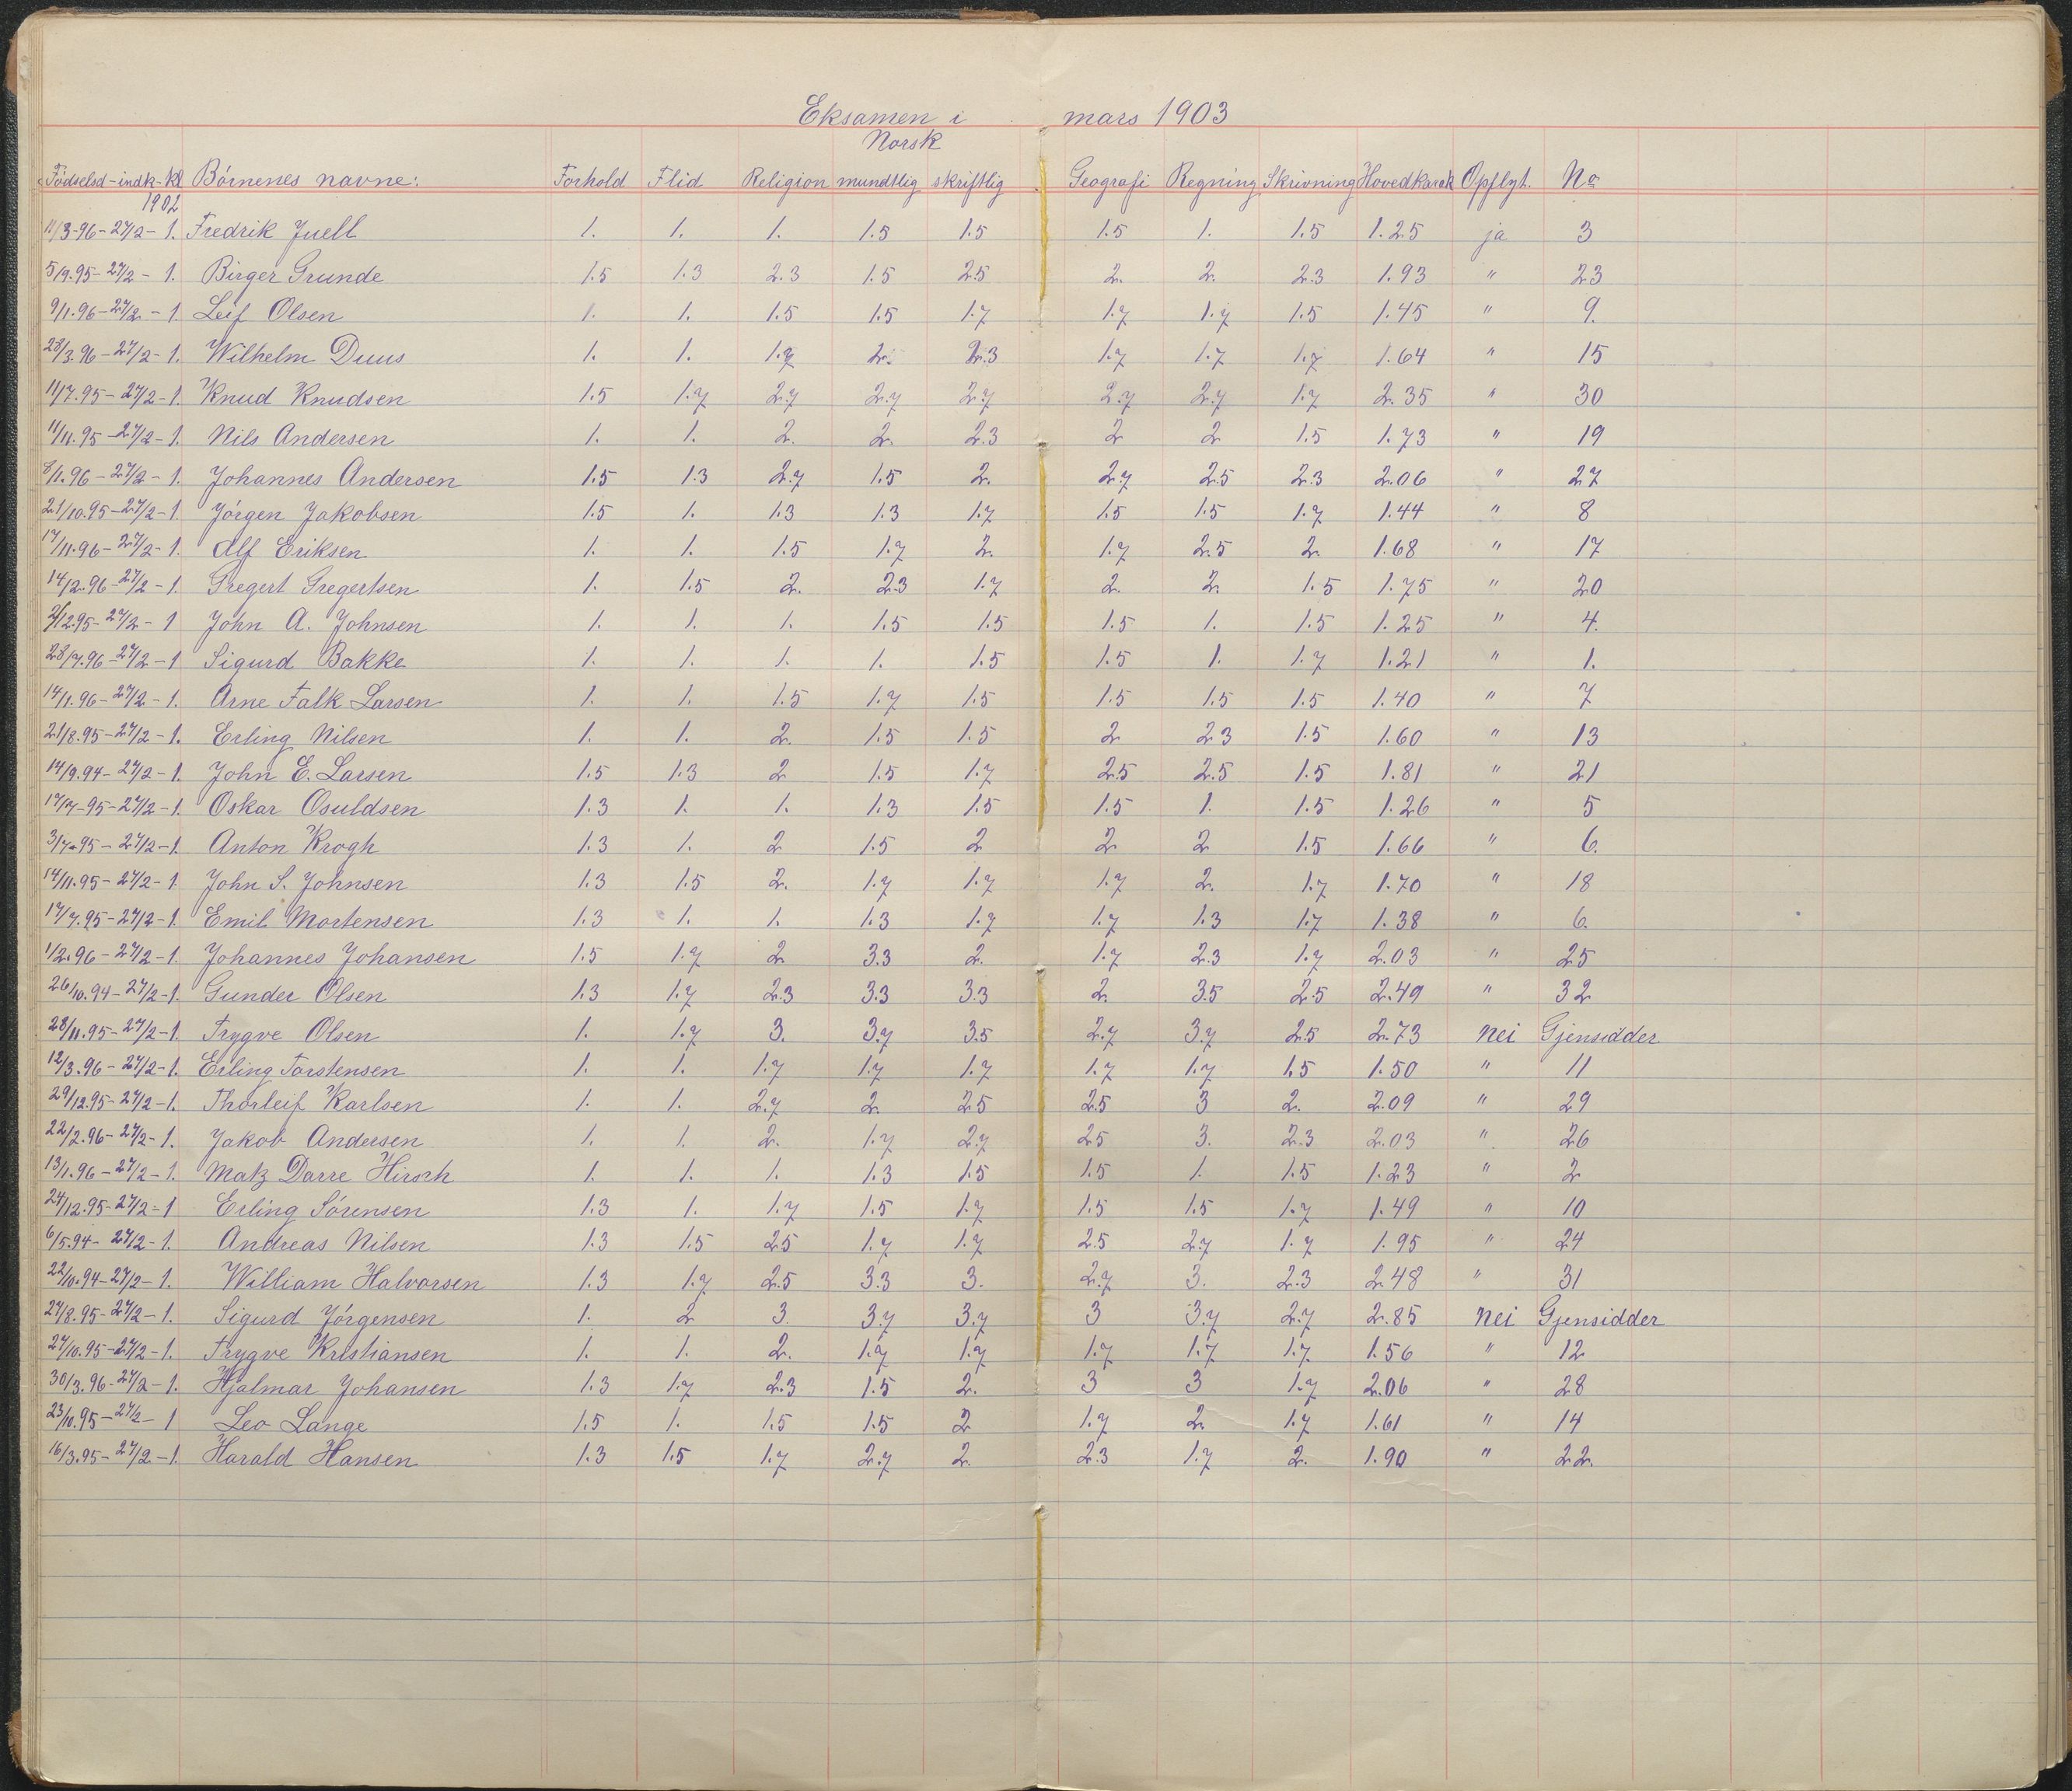 Eksamen i mars 1903
Norsk
Fødselsd-indk-kl Børnenes navne: Forhold Flid Religion mundtlig skriftlig Geografi Regning Skrivning Hovedkarak Opflyt. No
1902
11/3-96-27/2-1. Fredrik Juell 1. 1. 1. 1.5 1.5 1.5 1. 1.5 1.25 ja 3
5/9.95-27/2-1. Birger Grunde 1.5 1.3 2.3 1.5 2.5 2. 2. 2.3 1.93 " 23
9/1.96-27/2-1. Leif Olsen 1. 1. 1.5 1.5 1.7 1.7 1.7 1.5 1.45 " 9.
28/3.96-27/2-1. Wilhelm Duus 1. 1. 1.7 2. 2.3 1.7 1.7 1.7 1.64 " 15
11/7.95-27/2-1. Knud Knudsen 1.5 1.7 2.7 2.7 2.7 2.7 2.7 1.7 2.35 " 30
11/11.95-27/2-1. Nils Andersen 1. 1. 2. 2. 2.3 2 2 1.5 1.73 " 19
8/1.96-27/2-1. Johannes Andersen 1.5 1.3 2.7 1.5 2. 2.7 2.5 2.3 2.06 " 27
21/10.95-27/2-1. Jørgen Jakobsen 1.5 1. 1.3 1.3 1.7 1.5 1.5 1.7 1.44 " 8
17/11.96-27/2-1. Alf Eriksen 1. 1. 1.5 1.7 2. 1.7 2.5 2. 1.68 " 17
14/2.96-27/2-1. Gregert Gregertsen 1. 1.5 2. 2.3 1.7 2. 2. 1.5 1.75 " 20
2/12.95-27/2-1 John A. Johnsen 1. 1. 1. 1.5 1.5 1.5 1. 1.5 1.25 " 4.
28/7.96-27/2-1 Sigurd Bakke 1. 1. 1. 1. 1.5 1.5 1. 1.7 1.21 " 1.
14/1.96-27/2-1. Arne Falk Larsen 1. 1. 1.5 1.7 1.5 1.5 1.5 1.5 1.40 " 7
21/8.95-27/2-1. Erling Nilsen 1. 1. 2. 1.5 1.5 2 2.3 1.5 1.60 " 13
14/9.94-27/2-1. John E. Larsen 1.5 1.3 2 1.5 1.7 2.5 2.5 1.5 1.81 " 21
17/7-95-27/2-1. Oskar Osuldsen 1.3 1. 1. 1.3 1.5 1.5 1. 1.5 1.26 " 5
3/7-95-27/2-1. Anton Krogh 1.3 1. 2 1.5 2 2 2 1.5 1.66 " 6.
14/11.95-27/2-1. John S. Johnsen 1.3 1.5 2. 1.7 1.7 1.7 2. 1.7 1.70 " 18
17/7.95-27/2-1. Emil Mortensen 1.3 1. 1. 1.3 1.7 1.7 1.3 1.7 1.38 " 6.
1/2.96-27/2-1. Johannes Johansen 1.5 1.7 2 3.3 2. 1.7 2.3 1.7 2.03 " 25
26/10.94-27/2-1. Gunder Olsen 1.3 1.7 2.3 3.3 3.3 2. 3.5 2.5 2.49 " 32
28/11.95-27/2-1. Trygve Olsen 1. 1.7 3. 3.7 3.5 2.7 3.7 2.5 2.73 nei Gjensidder
12/3.96-27/2-1. Erling Torstensen 1. 1. 1.7 1.7 1.7 1.7 1.7 1.5 1.50 " 11
29/12.95-27/2-1. Thorleif Karlsen 1. 1. 2.7 2. 2.5 2.5 3 2. 2.09 " 29
22/2.96-27/2-1. Jakob Andersen 1. 1. 2. 1.7 2.7 2.5 3. 2.3 2.03 " 26
13/1.96-27/2-1. Matz Darre Hirsch 1. 1. 1. 1.3 1.5 1.5 1. 1.5 1.23 " 2
24/12.95-27/2-1 Erling Sørensen 1.3 1. 1.7 1.5 1.7 1.5 1.5 1.7 1.49 " 10
6/5.94-27/2-1. Andreas Nilsen 1.3 1.5 2.5 1.7 1.7 2.5 2.7 1.7 1.95 " 24
22/10.94-27/2-1. William Halvorsen 1.3 1.7 2.5 3.3 3. 2.7 3. 2.3 2.48 " 31
27/8.95-27/2-1. Sigurd Jørgensen 1. 2 3 3.7 3.7 3 3.7 2.7 2.85 nei Gjensidder
27/10.95-27/2-1. Trygve Kristiansen 1. 1. 2. 1.7 1.7 1.7 1.7 1.7 1.56 " 12
30/3.96-27/2-1. Hjalmar Johansen 1.3 1.7 2.3 1.5 2. 3 3 1.7 2.06 " 28
23/10.95-27/2-1 Leo Lange 1.5 1. 1.5 1.5 2 1.7 2. 1.7 1.61 " 14
16/3.95-27/2-1. Harald Hansen 1.3 1.5 1.7 2.7 2. 2.3 1.7 2. 1.90 " 22.